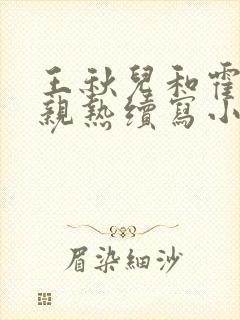 王秋兒和霍
親熱續寫小
眉染細沙